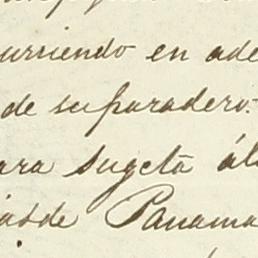 urriendo en ade
de su paradero.
ara sugeta ál
de Panama